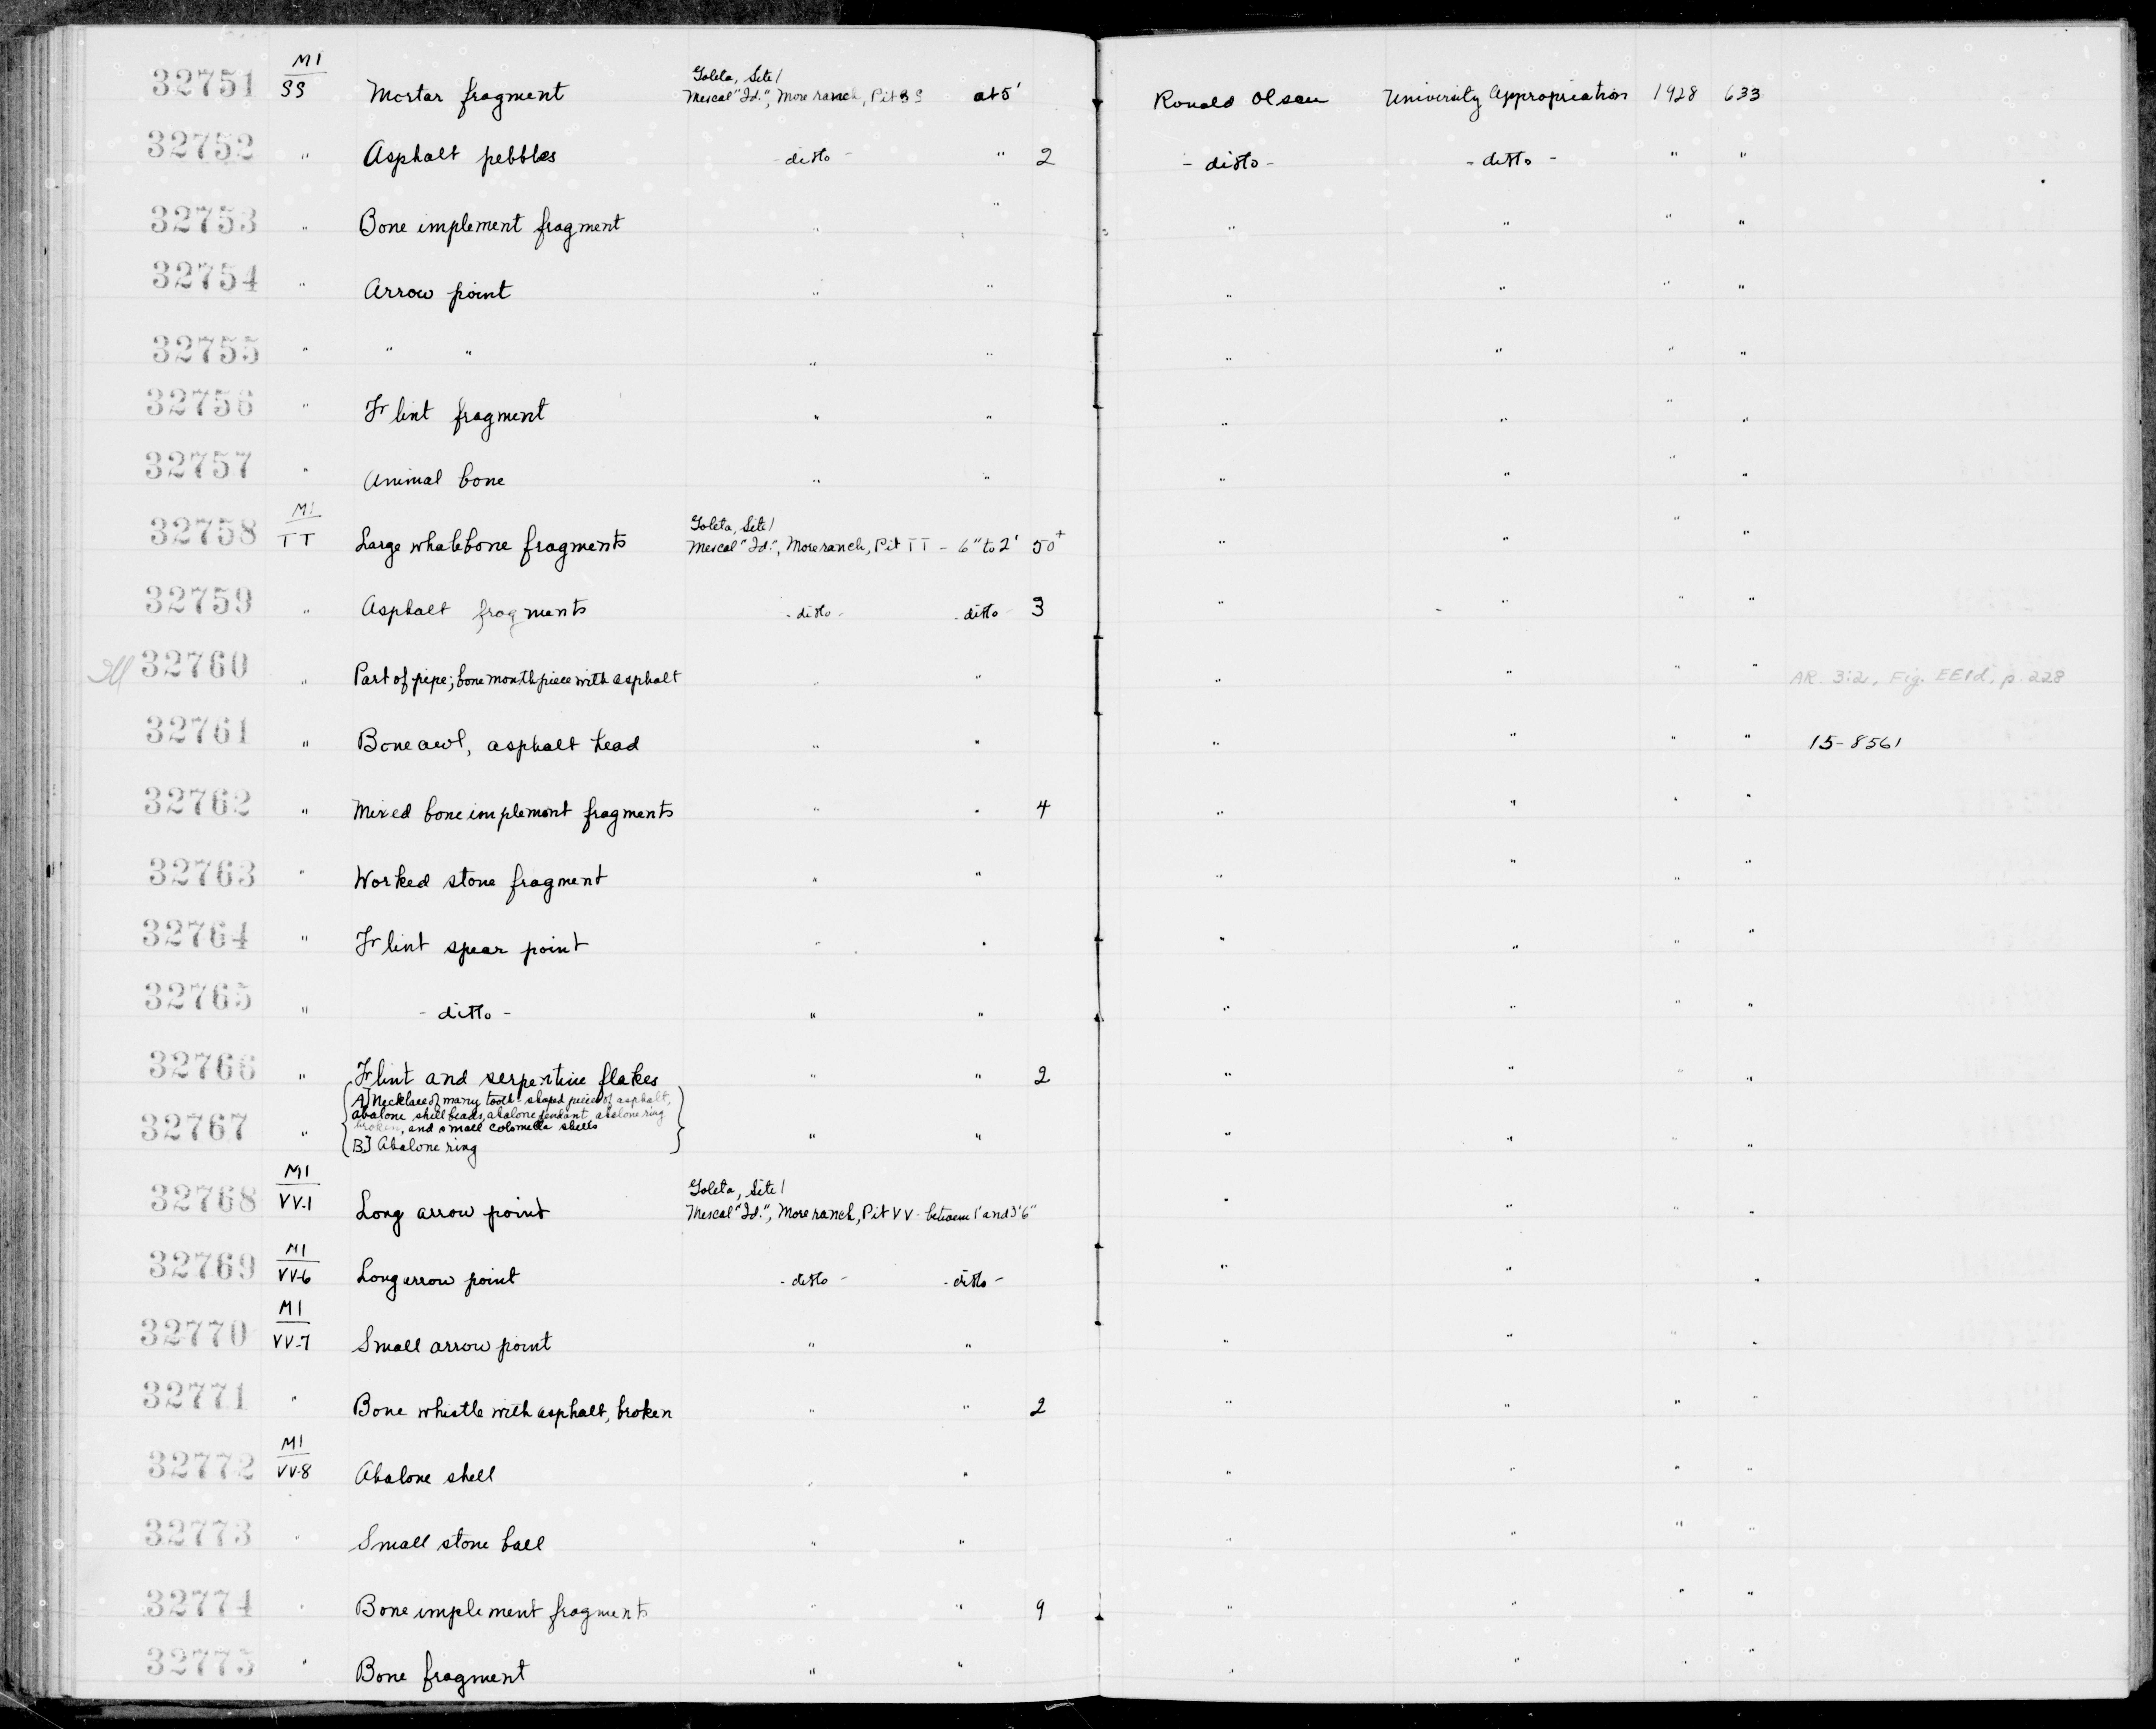 32751 M1 SS Mortar fragment Goleta, Site 1 Mescal "Id.", More ranch, Pit SS at 5' Ronald Olson University Appropriation 1928 633
32752 " Asphalt pebbles - ditto - " 2 - ditto - - ditto - " "
32753 " Bone implement fragment " " " " " "
32754 " Arrow point " " " " " "
32755 " " " " " " " " "
32756 " Flint fragment " " " " " "
32757 " Animal bone " " " " " "
32758 M1 TT Large whalebone fragments Goleta, Site 1 Mescal "Id.", More ranch, Pit TT - 6" to 2' 50+ " " " "
32759 " Asphalt fragments - ditto - - ditto - 3 " " " "
Ill 32760 " Part of pipe; bone mouthpiece with asphalt " " " " " " AR. 3:2, Fig. EE1d, p. 228
32761 " Bone awl, asphalt head " " " " " " 15-8561
32762 " Mixed bone implement fragments " " 4 " " " "
32763 " Worked stone fragment " " " " " "
32764 " Flint spear point " " " " " "
32765 " - ditto - " " " " " "
32766 " Flint and serpentine flakes " " 2 " " " "
32767 " A] Necklace of many tooth-shaped pieces of asphalt,
abalone shell beads, abalone pendant, abalone ring
broken, and small colomella shells
B] Abalone ring " " " " " "
32768 M1 VV-1 Long arrow point Goleta, Site 1 Mescal "Id.", More ranch, Pit VV - between 1' and 3'6" " " " "
32769 M1 VV-6 Long arrow point - ditto - - ditto - " " "
32770 M1 VV-7 Small arrow point " " " " " "
32771 " Bone whistle with asphalt, broken " " 2 " " " "
32772 M1 VV-8 Abalone shell " " " " " "
32773 " Small stone ball " " " " " "
32774 " Bone implement fragments " " 9 " " " "
32775 " Bone fragment " " " " " "